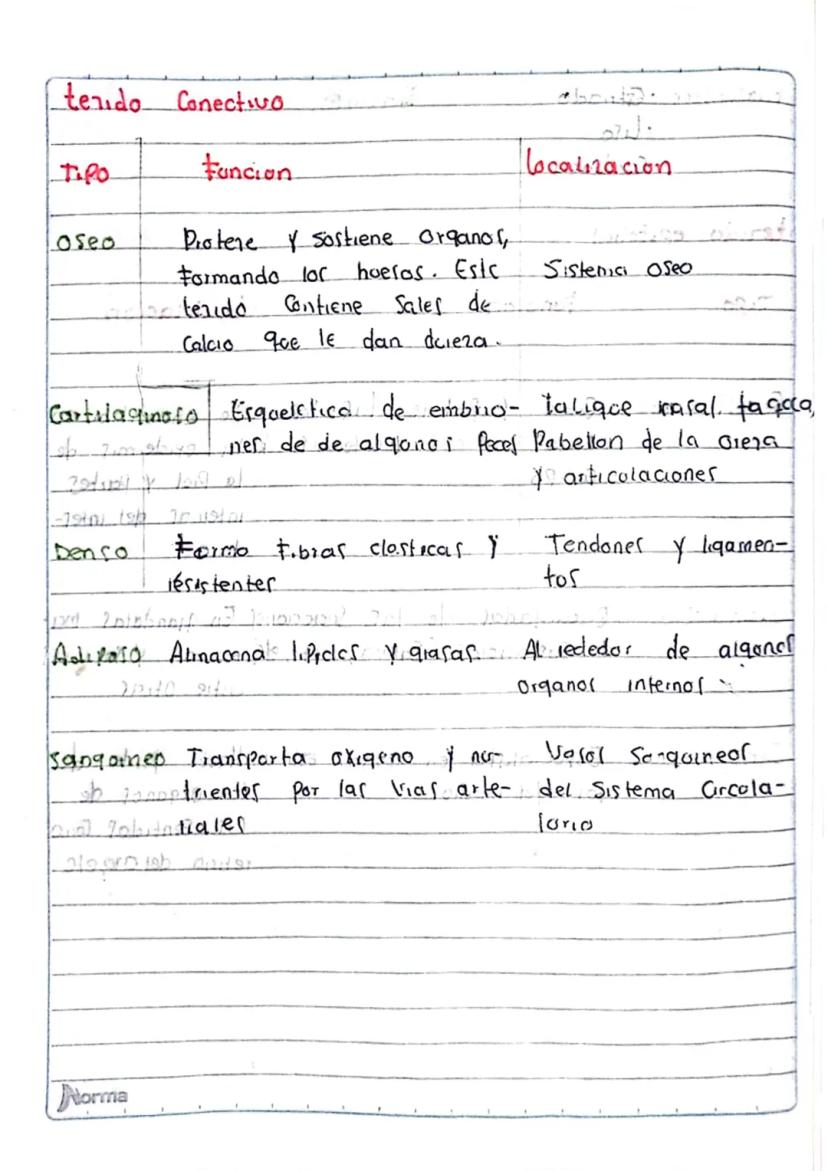 tejido Conectivo
Tipo funcion localizacion
oseo Protege y sostiene organos,
formando los huesos. Este Sistema oseo
tejido Contiene Sales de
Calcio que le dan dureza.
Cartilaginoso Esqueletico de embrio- Tabique nasal,
nes de de algunos Peces Pabellon de la oreja
y articulaciones
Denso Forma fibras elasticas y Tendones y ligamen-
resistentes tos
Adiposo Almacena lipidos y grasas Al rededor de algunos
organos internos
Sanguineo Transporta oxigeno y nu- Vasos Sanguineos
trientes por las vias arte- del Sistema Circula-
riales torio
Norma